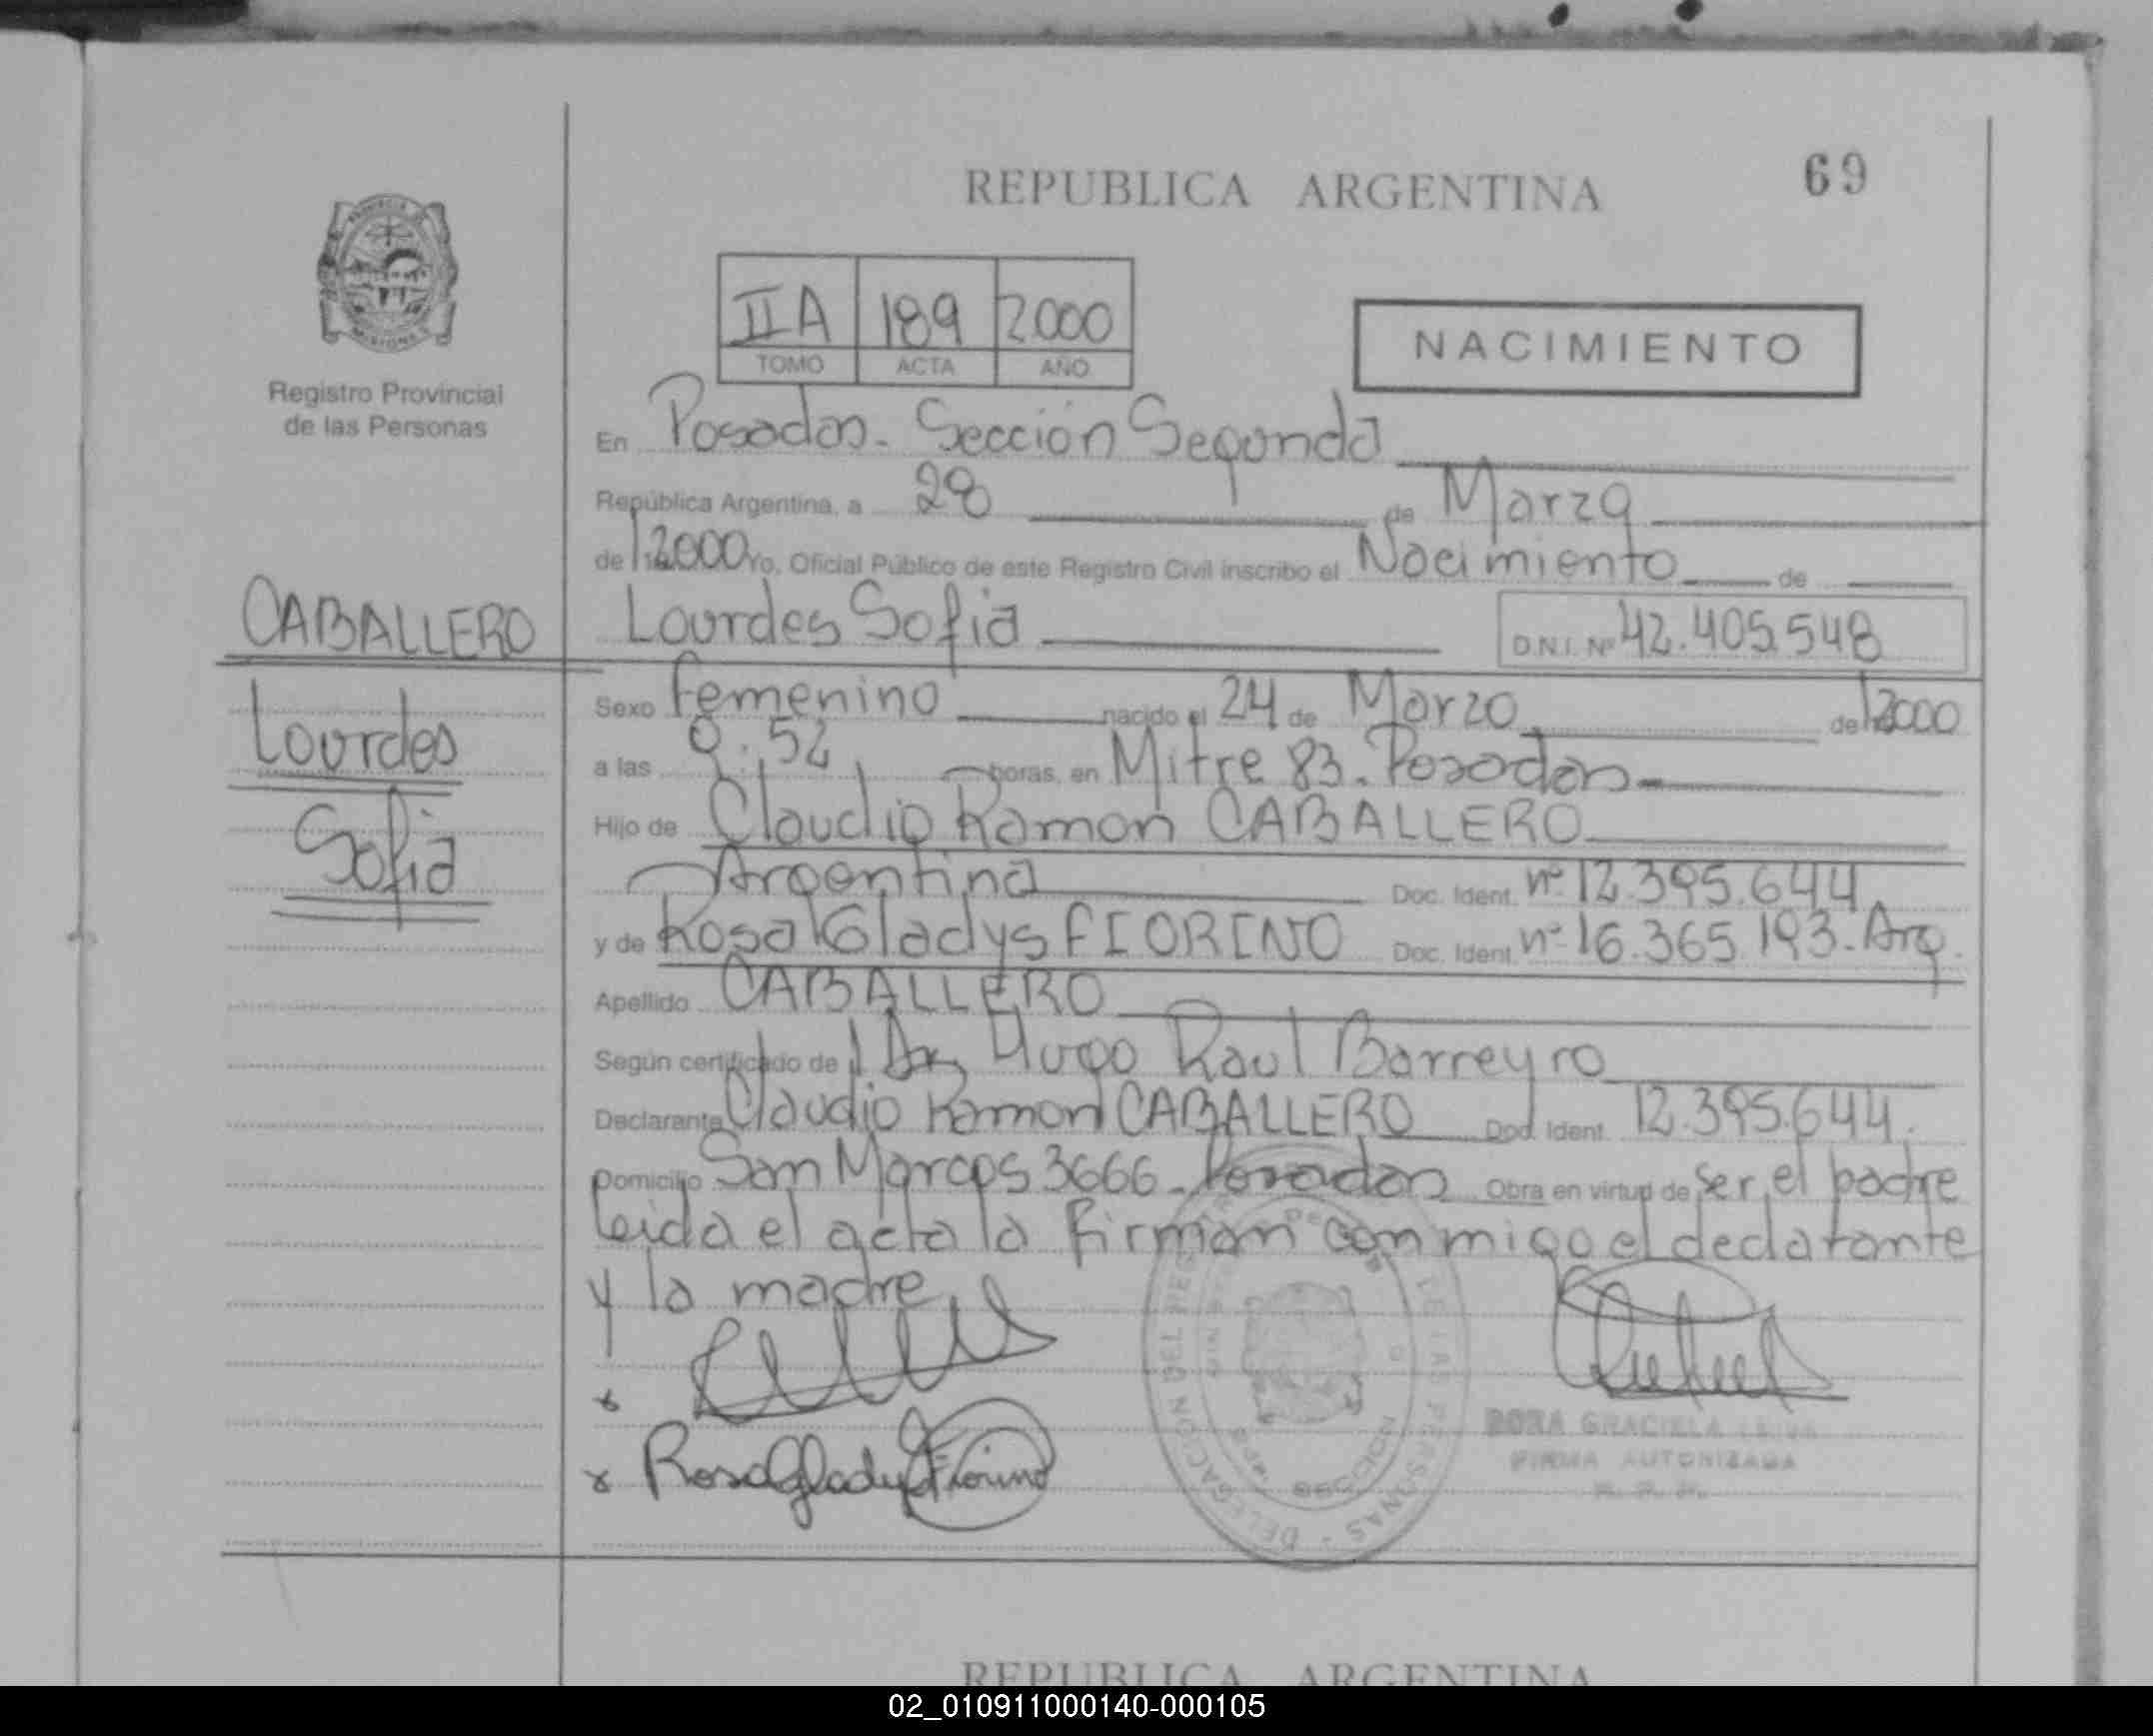 REPUBLICA ARGENTINA
69
IIA 189 2000
TOMO ACTA AÑO
NACIMIENTO
Registro Provincial
de las Personas
En Posadas - Sección Segunda
República Argentina, a 28 de Marzo
de 2000 Yo, Oficial Público de este Registro Civil inscribo el Nacimiento de
CABALLERO
Lourdes Sofia
D.N.I. Nº 42.405.548
Lourdes
Sofia
Sexo Femenino nacido el 24 de Marzo de 2000
a las horas, en Mitre 83. Posadas
Hijo de Claudio Ramon CABALLERO
Argentina Doc. Ident. nº 12.395.644
y de Rosa Gladys FIORINO Doc. Ident. nº 16.365.193 - Arg.
Apellido CABALLERO
Según certificado de Dr. Hugo Raul Barreyro
Declarante Claudio Ramon CABALLERO Doc. Ident. 12.395.644.
Domicilio San Marcos 3666 - Posadas Obra en virtud de ser el padre
leida el acta la firman conmigo el declarante
y la madre
x
x Rosa Gladys Fiorino
DELEGACION DEL REGISTRO DE LAS PERSONAS
SECCION
DORA GRACIELA
FIRMA AUTORIZADA
REPUBLICA ARGENTINA
02_010911000140-000105